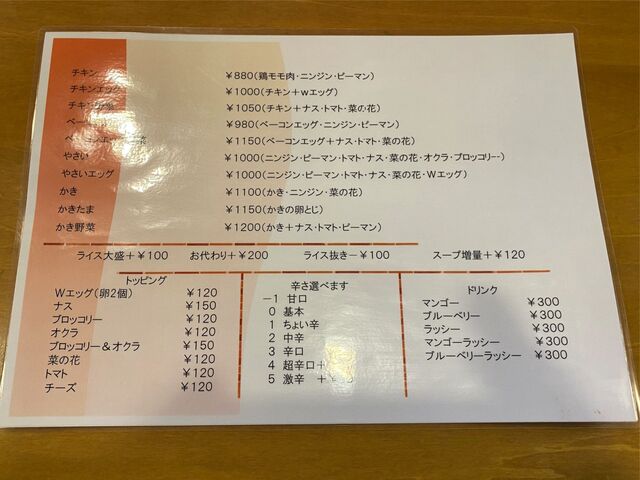 チキン ￥880(鶏モモ肉・ニンジン・ピーマン)
チキンエッグ ￥1000(チキン＋wエッグ)
チキン野菜 ￥1050(チキン＋ナス・トマト・菜の花)
ベーコン ￥980(ベーコンエッグ・ニンジン・ピーマン)
ベーコンエッグ野菜 ￥1150(ベーコンエッグ＋ナス・トマト・菜の花)
やさい ￥1000(ニンジン・ピーマン・トマト・ナス・菜の花・オクラ・ブロッコリー-)
やさいエッグ ￥1000(ニンジン・ピーマン・トマト・ナス・菜の花・Wエッグ)
かき ￥1100(かき・ニンジン・菜の花)
かきたま ￥1150(かきの卵とじ)
かき野菜 ￥1200(かき＋ナス・トマト・ピーマン)
ライス大盛＋￥100 お代わり＋￥200 ライス抜き－￥100 スープ増量＋￥120
トッピング
Wエッグ(卵2個) ￥120
ナス ￥150
ブロッコリー ￥120
オクラ ￥120
ブロッコリー＆オクラ ￥150
菜の花 ￥120
トマト ￥120
チーズ ￥120
辛さ選べます
－1 甘口
0 基本
1 ちょい辛
2 中辛
3 辛口
4 超辛口＋
5 激辛 ＋
ドリンク
マンゴー ￥300
ブルーベリー ￥300
ラッシー ￥300
マンゴーラッシー ￥300
ブルーベリーラッシー ￥300